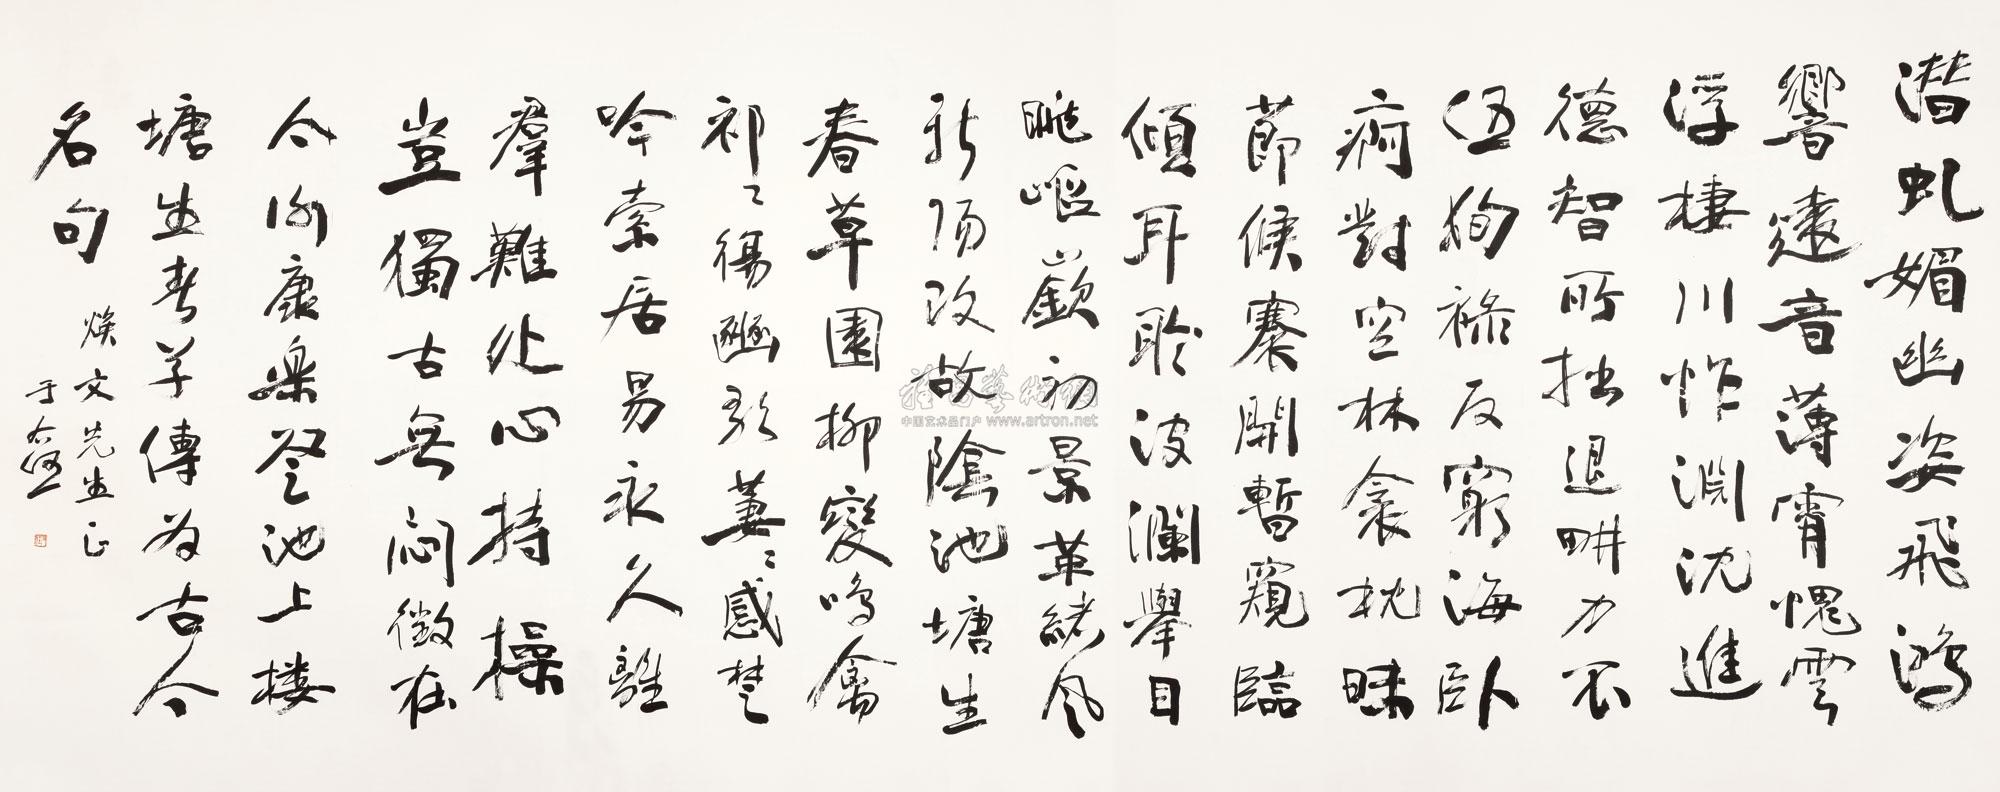 潛虬媚幽姿飛鴻
響遠音薄霄愧雲
浮棲川怍淵沈進
德智所拙退畊力不
任狥祿反窮海臥
痾對空林衾枕昧
節候褰開暫窺臨
傾耳聆波瀾舉目
眺嶇嶔初景革緒風
新陽改故陰池塘生
春草園柳變鳴禽
祁〻傷豳歌萋〻感楚
吟索居易永久離
羣難處心持操
豈獨古無悶徵在
今謝康樂登池上樓
塘生春草傳為古今
名句
煥文先生正
于右任
雅昌藝術網
中国艺术品门户 www.artron.net